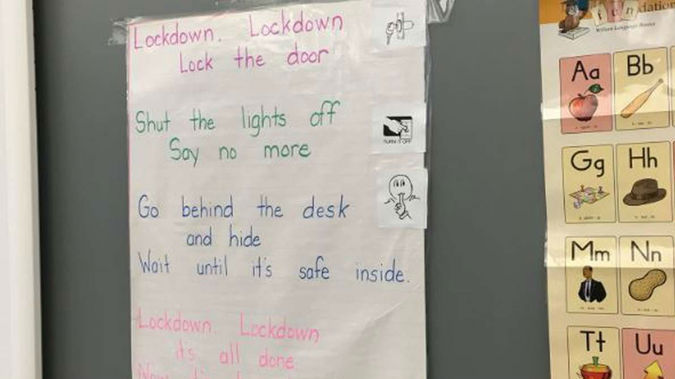 Lockdown, Lockdown
Lock the door
Shut the lights off
Say no more
TURN IT OFF
Go behind the desk
and hide
Wait until it's safe inside.
Lockdown, Lockdown
it's all done.
Wilson Language Basics
Aa
Bb
Gg
Hh
Mm
Nn
Tt
Uu